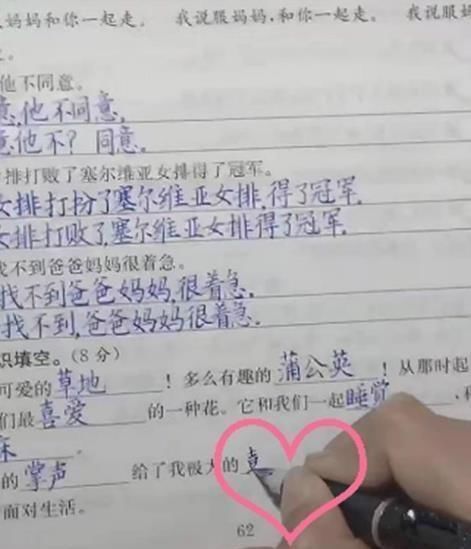 妈妈和你一起走。 我说服妈妈,和你一起走。 我说服妈
他不同意。
意,他不同意,
意,他不? 同意。
排打败了塞尔维亚女排得了冠军。
女排打扮了塞尔维亚女排,得了冠军,
女排打败了,塞尔维亚女排得了冠军,
找不到爸爸妈妈很着急。
找不到爸爸妈妈,很着急,
找不到,爸爸妈妈很着急。
识填空。(8 分)
可爱的草地!多么有趣的蒲公英!从那时起
们最喜爱的一种花。它和我们一起睡觉
的掌声给了我极大的
面对生活。
62